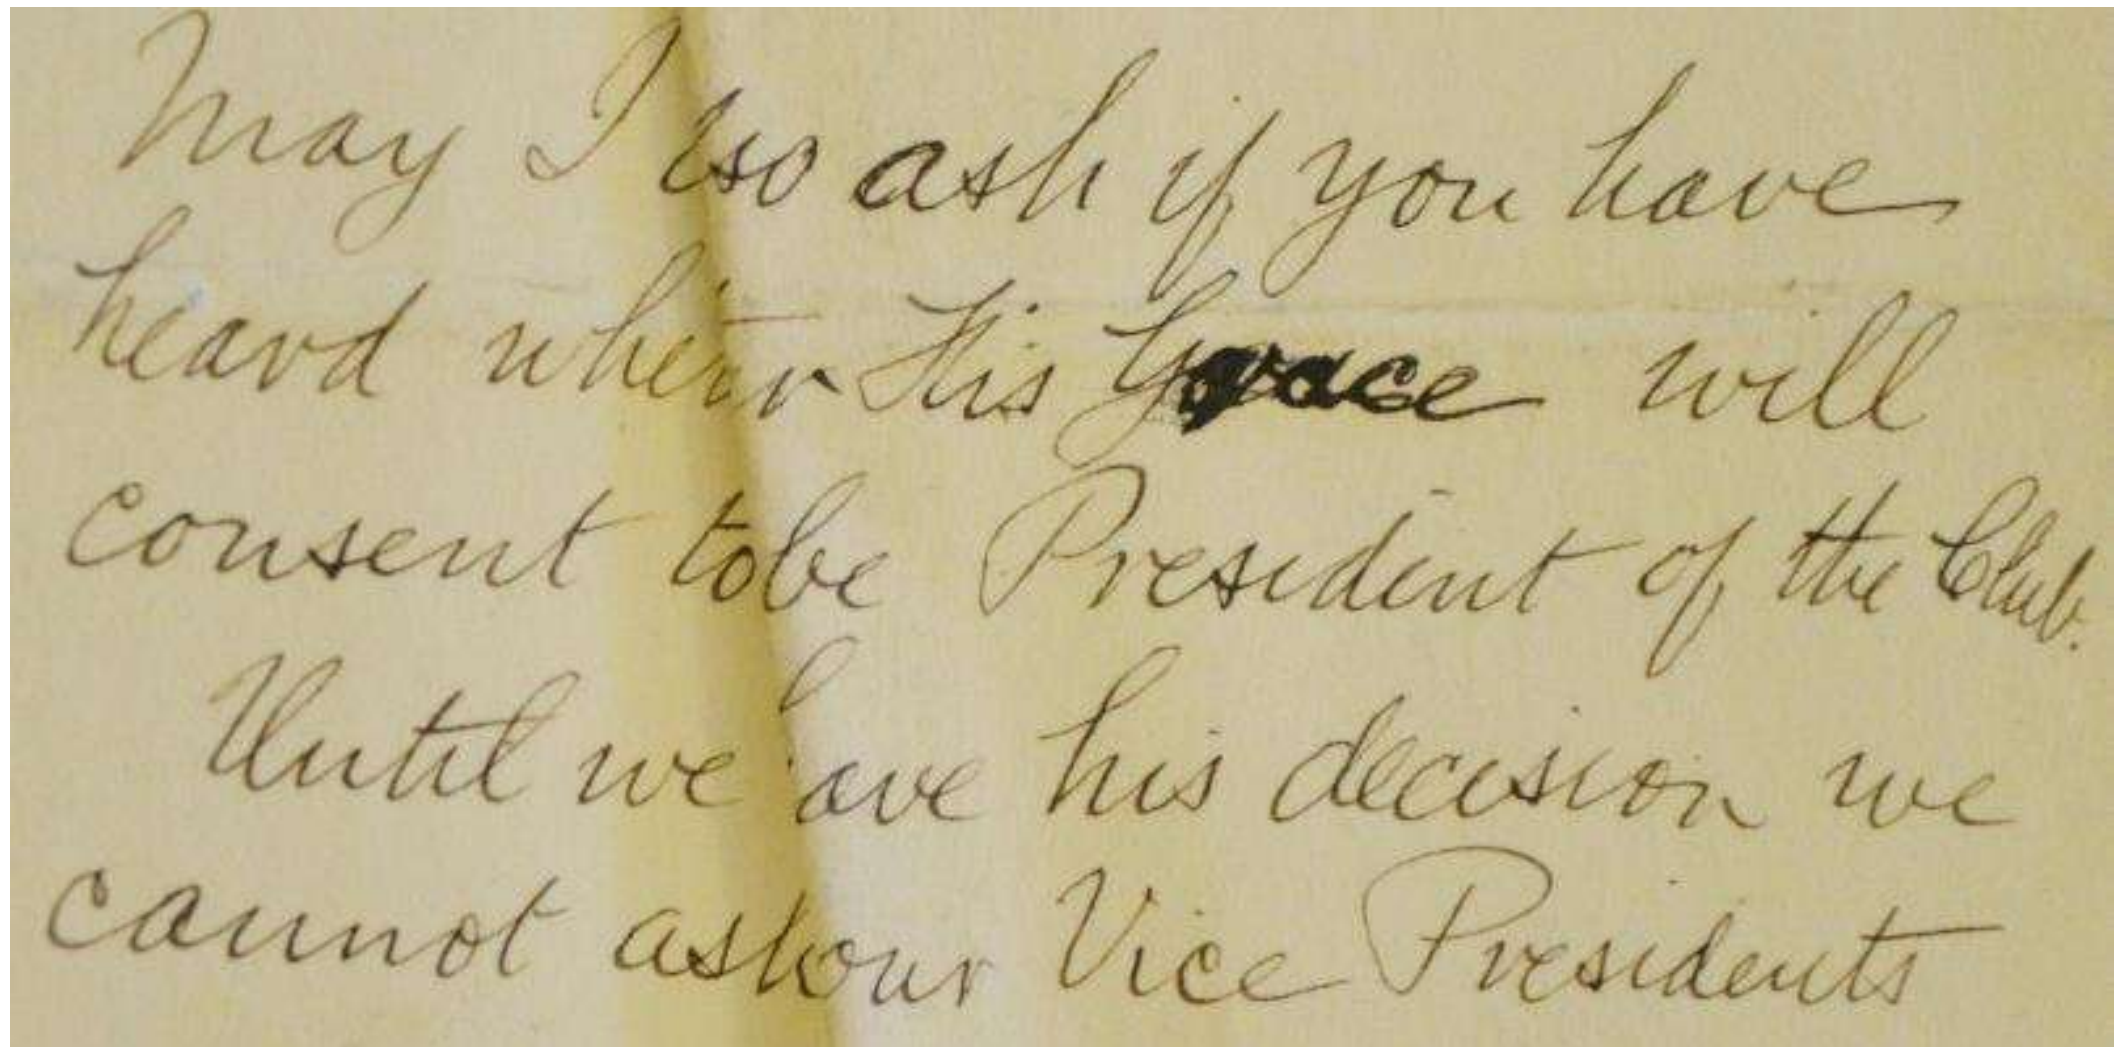 May I also ask if you have
heard whether His Grace will
consent to be President of the Club.
Until we have his decision we
cannot ask our Vice Presidents